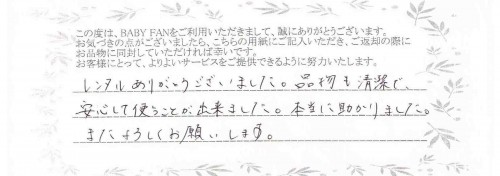 この度は、BABY FANをご利用いただきまして、誠にありがとうございます。
お気づきの点がございましたら、こちらの用紙にご記入いただき、ご返却の際に
お品物に同封していただければ幸いです。
お客様にとって、よりよいサービスをご提供できるように努力いたします。
レンタルありがとうございました。品物も清潔で、
安心して使うことが出来ました。本当に助かりました。
またよろしくお願いします。